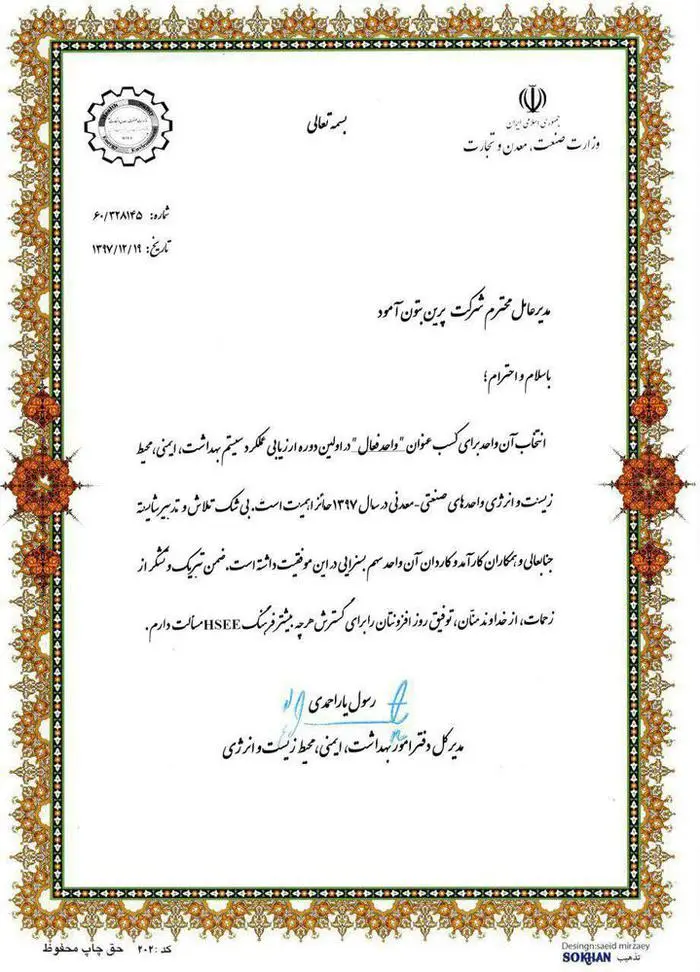 بسمه تعالی
جمهوری اسلامی ایران
وزارت صنعت، معدن و تجارت
شماره: ۶۰/۳۲۸۱۴۵
تاریخ: ۱۳۹۷/۱۲/۱۹
مدیرعامل محترم شرکت پرین بتون آمود
باسلام و احترام؛
انتخاب آن واحد برای کسب عنوان "واحد فعال" در اولین دوره ارزیابی عملکرد سیستم بهداشت، ایمنی، محیط
زیست و انرژی واحدهای صنعتی-معدنی در سال ۱۳۹۷ حائز اهمیت است. بی شک تلاش و تدبیر شایسته
جنابعالی و همکاران کارآمد و کاردان آن واحد سهم بسزایی در این موفقیت داشته است. ضمن تبریک و تشکر از
زحمات، از خداوند منّان، توفیق روز افزونتان را برای گسترش هرچه بیشتر فرهنگ HSEE مسألت دارم.
رسول یاراحمدی
مدیرکل دفتر امور بهداشت، ایمنی، محیط زیست و انرژی
کد :۲۰۲ حق چاپ محفوظ
Desingn:saeid mirzaey
SOKHAN تذهیب